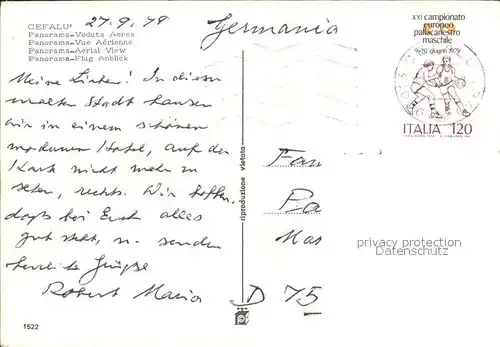 CEFALU'
Panorama-Veduta Aerea
Panorama-Vue Aérienne
Panorama-Aerial View
Panorama-Flug Anblick
27.9.79
Germania
XXI campionato
europeo
pallacanestro
maschile
9-20 giugno 1979
ITALIA 120
Meine Lieben! In diesem
uralten Stadt hausen
wir in einem schönen
modernen Hotel, auf der
Karte nicht mehr zu
sehen, rechts. Wir hoffen,
daß bei Euch alles
gut steht, u. senden
herzliche Grüße
Robert Maria
riproduzione vietata
Fam
Pa
Mas
D 75
privacy protection
Datenschutz
1522